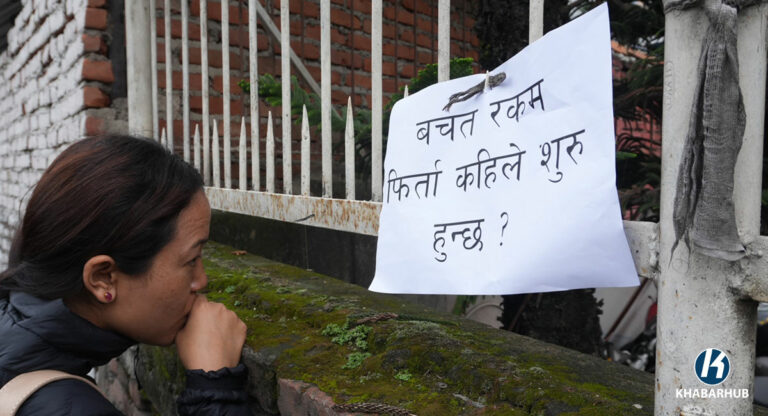 बचत रकम
फिर्ता कहिले शुरु
हुन्छ ?
KHABARHUB